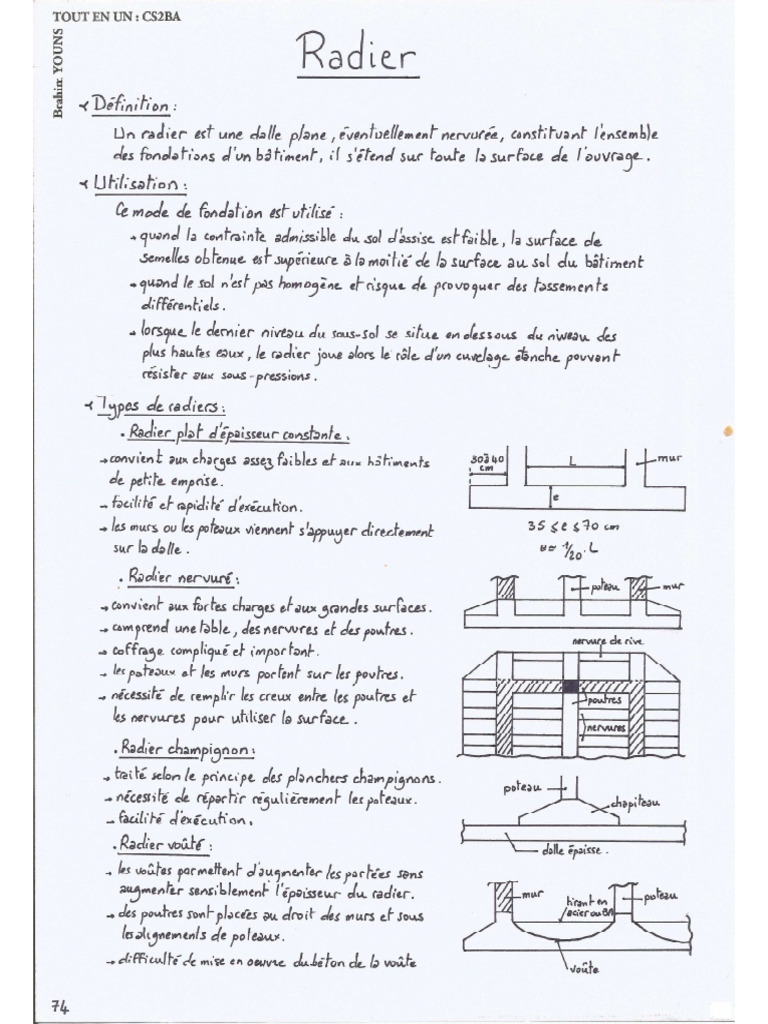 TOUT EN UN : CS2BA
Brahim YOUNS
Radier
Définition :
Un radier est une dalle plane, éventuellement nervurée, constituant l'ensemble
des fondations d'un bâtiment, il s'étend sur toute la surface de l'ouvrage.
Utilisation :
Ce mode de fondation est utilisé :
→ quand la contrainte admissible du sol d'assise est faible, la surface de
semelles obtenue est supérieure à la moitié de la surface au sol du bâtiment
→ quand le sol n'est pas homogène et risque de provoquer des tassements
différentiels.
→ lorsque le dernier niveau du sous-sol se situe en dessous du niveau des
plus hautes eaux, le radier joue alors le rôle d'un cuvelage étanche pouvant
résister aux sous-pressions.
Types de radiers :
• Radier plat d'épaisseur constante.
→ convient aux charges assez faibles et aux bâtiments
de petite emprise.
→ facilité et rapidité d'exécution.
→ les murs ou les poteaux viennent s'appuyer directement
sur la dalle.
30 à 40
cm
L
mur
e
35 ≤ e ≤ 70 cm
1/20 . L
• Radier nervuré :
→ convient aux fortes charges et aux grandes surfaces.
→ comprend une table, des nervures et des poutres.
→ coffrage compliqué et important.
→ les poteaux et les murs portent sur les poutres.
→ nécessité de remplir les creux entre les poutres et
les nervures pour utiliser la surface.
poteau
mur
nervure de rive
poutres
nervures
• Radier champignon :
→ traité selon le principe des planchers champignons.
→ nécessité de répartir régulièrement les poteaux.
→ facilité d'exécution.
poteau
chapiteau
dalle épaisse.
• Radier voûté :
→ les voûtes permettent d'augmenter les portées sans
augmenter sensiblement l'épaisseur du radier.
→ des poutres sont placées au droit des murs et sous
les alignements de poteaux.
→ difficulté de mise en oeuvre du béton de la voûte
mur
tirant en
acier ou BA
poteau
voûte
74